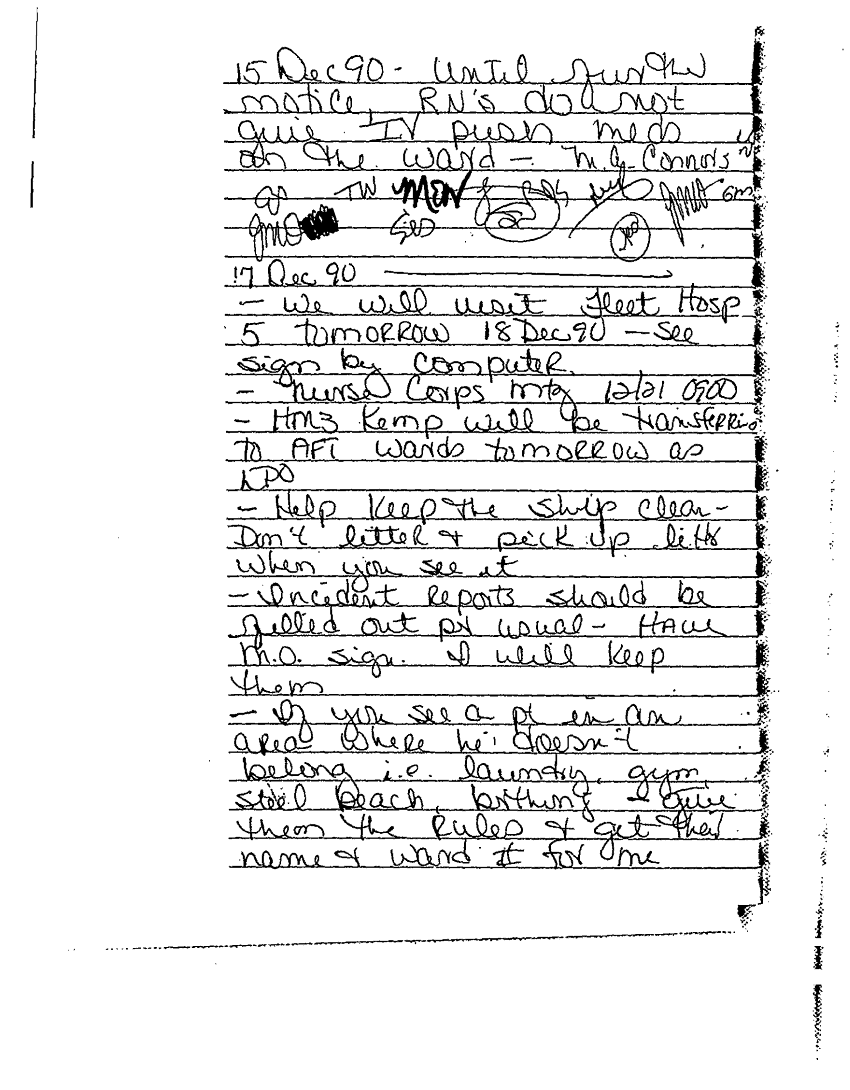 15 Dec 90 - Until further
notice, RN's do not
give IV push meds
on the ward - M.A. Connors
TW MEW
GMO
17 Dec 90
- We will visit Fleet Hosp
5 tomorrow 18 Dec 90 - see
sign by computer.
- Nurse Corps mtg 12/21 0900
- HM3 Kemp will be transferring
to AFT wards tomorrow as
LPO
- Help keep the ship clean -
Don't litter & pick up litter
when you see it
- Incident Reports should be
filled out per usual - Have
M.O. sign. I will keep
them
- If you see a pt in an
area where he doesn't
belong i.e. laundry, gym,
steel beach, berthing - give
them the rules & get their
name & ward # for me